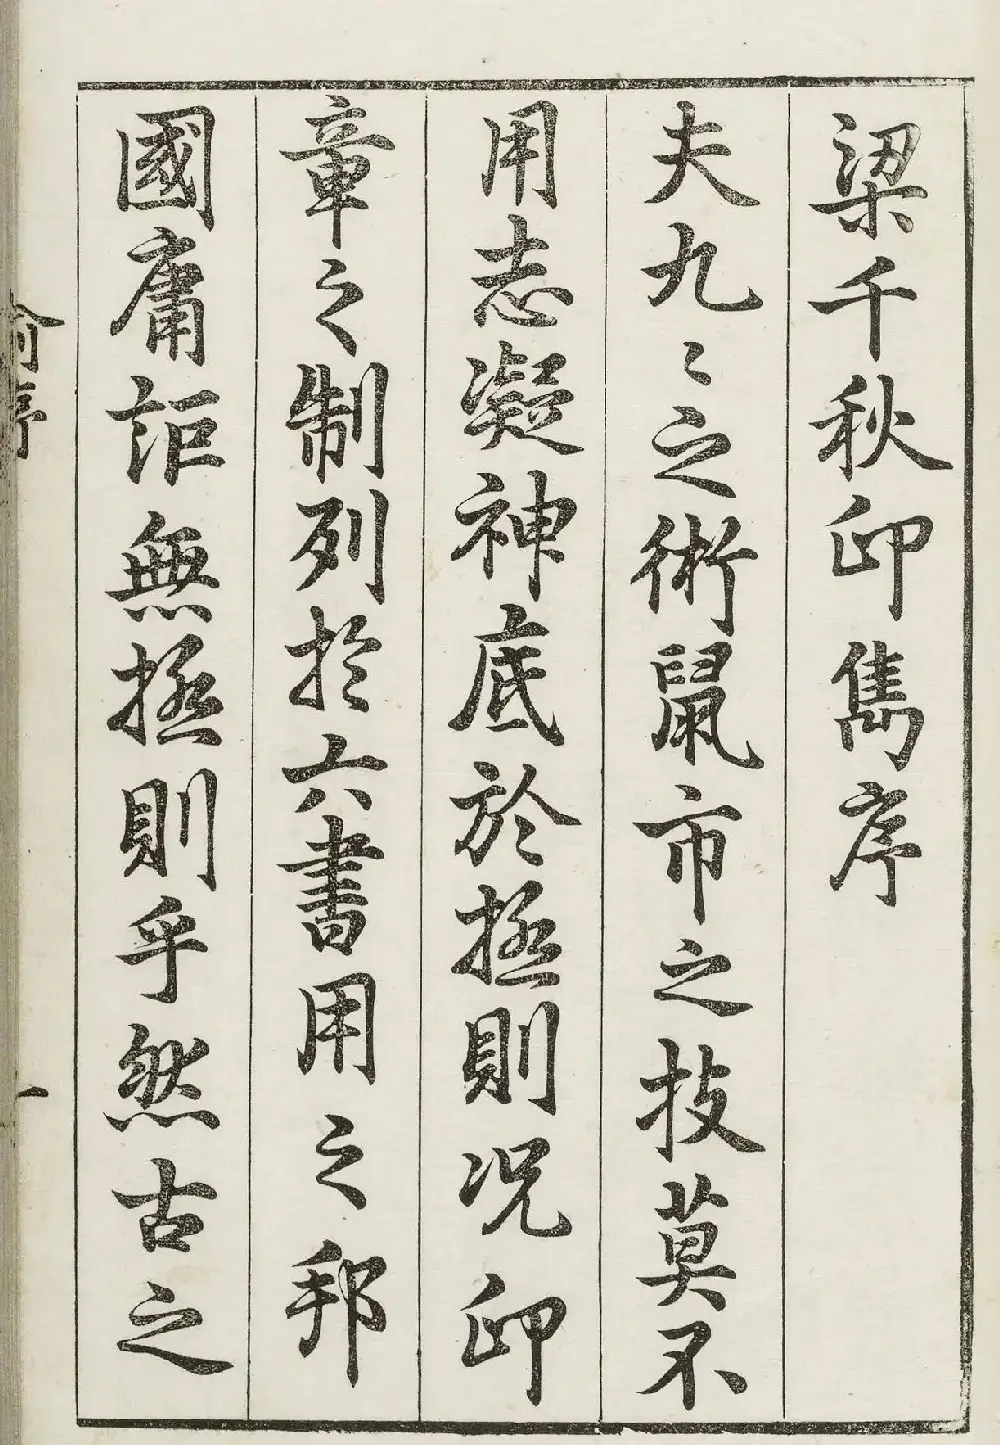 梁千秋印雋序
夫九〻之術鼠市之技莫不
用志凝神底於極則況印
章之制列於六書用之邦
國庸詎無極則乎然古之
俞序
一